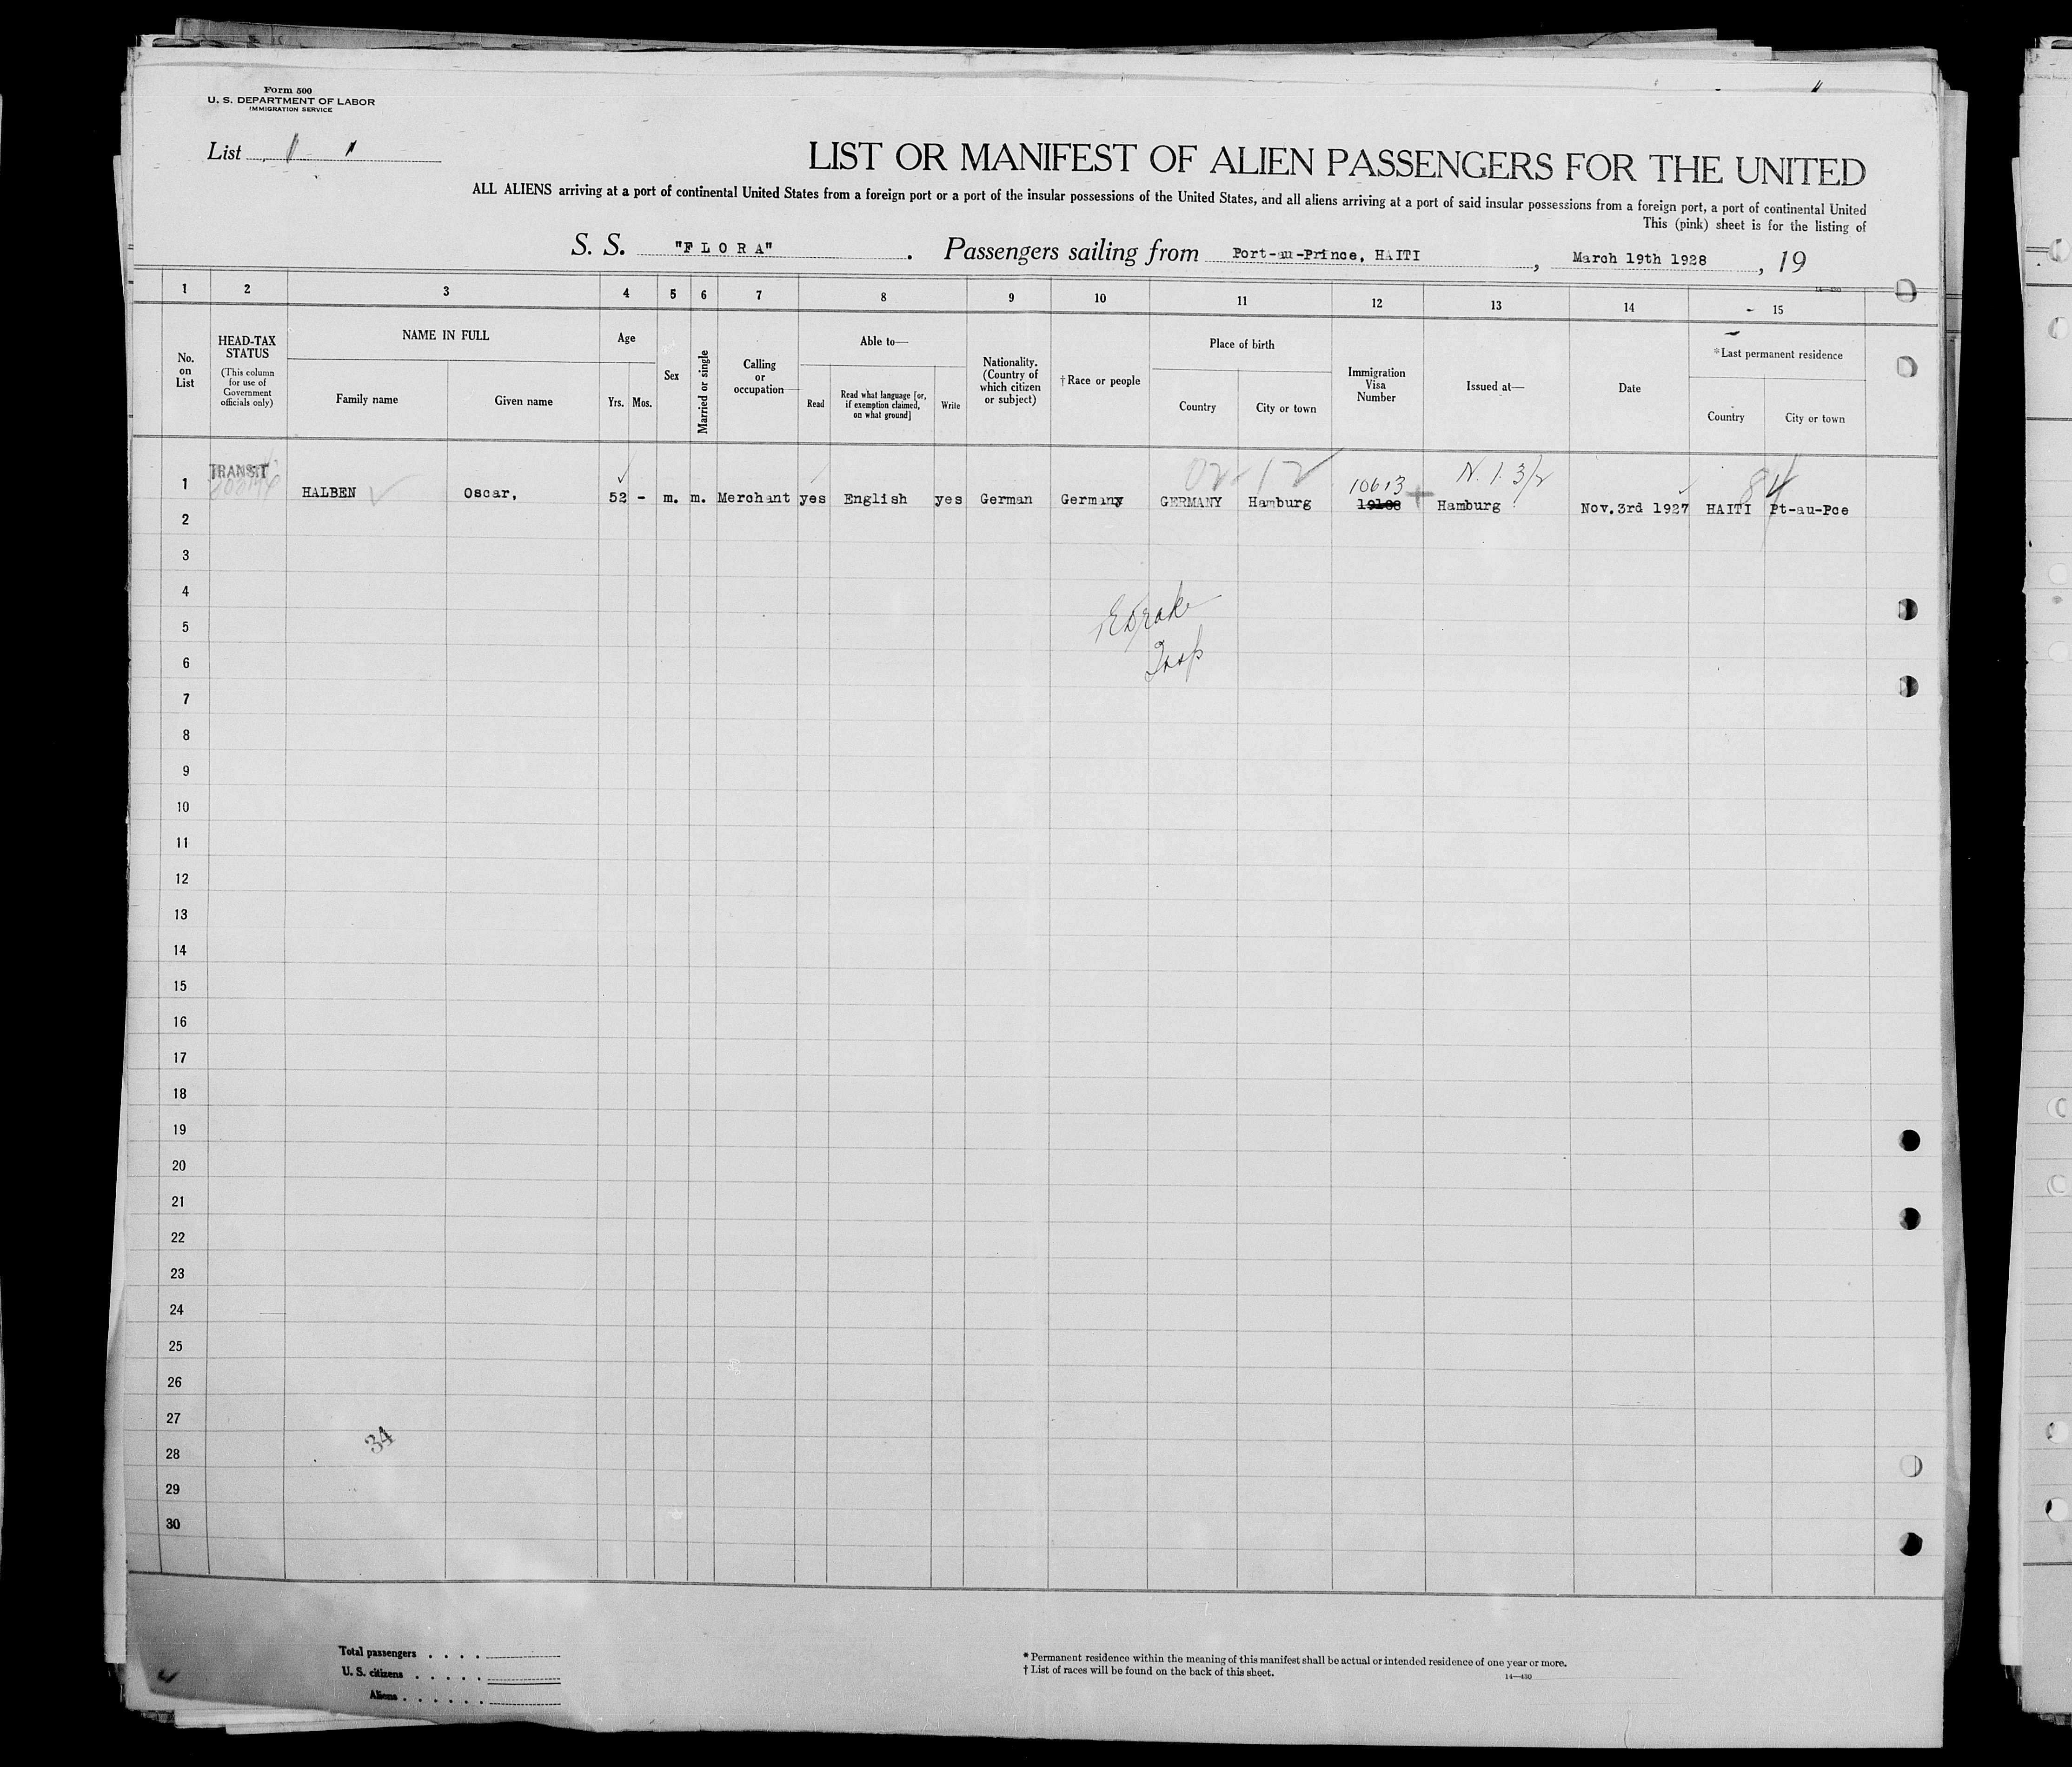 Form 500
U. S. DEPARTMENT OF LABOR
IMMIGRATION SERVICE
List
LIST OR MANIFEST OF ALIEN PASSENGERS FOR THE UNITED
ALL ALIENS arriving at a port of continental United States from a foreign port or a port of the insular possessions of the United States, and all aliens arriving at a port of said insular possessions from a foreign port, a port of continental United
This (pink) sheet is for the listing of
S. S. "FLORA" . Passengers sailing from Port-au-Prince, HAITI , March 19th 1928 , 19
14-430
1 2 3 4 5 6 7 8 9 10 11 12 13 14 15
No. on List
HEAD-TAX STATUS
(This column for use of Government officials only)
NAME IN FULL
Family name
Given name
Age
Yrs. Mos.
Sex
Married or single
Calling or occupation
Able to—
Read
Read what language [or, if exemption claimed, on what ground]
Write
Nationality. (Country of which citizen or subject)
†Race or people
Place of birth
Country
City or town
Immigration Visa Number
Issued at—
Date
*Last permanent residence
Country
City or town
TRANSIT
02-12
10613
N.I. 3/2
84
1 HALBEN Oscar, 52 - m. m. Merchant yes English yes German Germany GERMANY Hamburg Hamburg Nov.3rd 1927 HAITI Pt-au-Pce
2
3
4
5
6
7
8
9
10
11
12
13
14
15
16
17
18
19
20
21
22
23
24
25
26
27
34
28
29
30
Total passengers
U. S. citizens
Aliens
* Permanent residence within the meaning of this manifest shall be actual or intended residence of one year or more.
† List of races will be found on the back of this sheet.
14—430